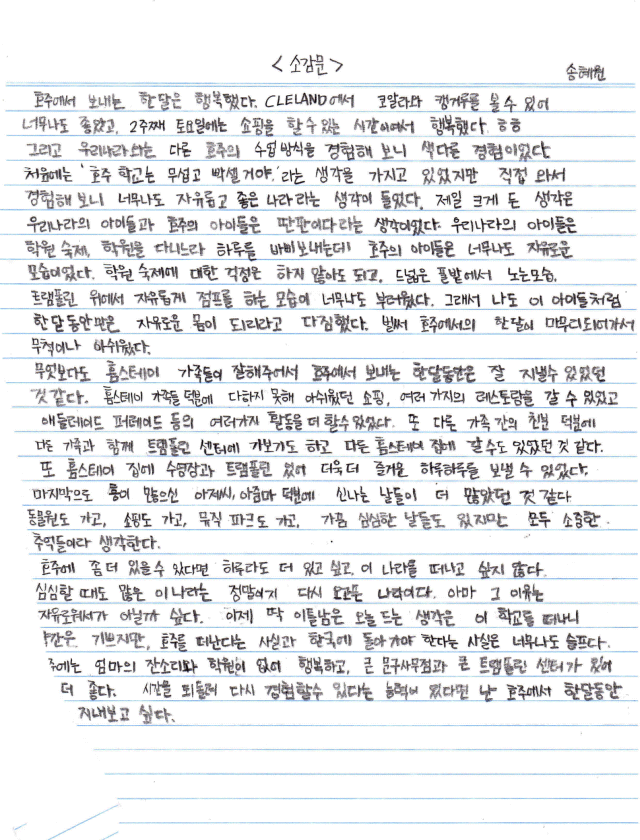 <소감문>
송혜원
호주에서 보내는 한달은 행복했다. CLELAND에서 코알라와 캥거루를 볼 수 있어
너무나도 좋았고, 2주째 토요일에는 쇼핑을 할 수 있는 시간이여서 행복했다 ㅎㅎ
그리고 우리나라와는 다른 호주의 수업방식을 경험해 보니 색다른 경험이었다
처음에는 '호주 학교는 무섭고 빡셀거야.'라는 생각을 가지고 있었지만 직접 와서
경험해 보니 너무나도 자유롭고 좋은 나라라는 생각이 들었다. 제일 크게 든 생각은
우리나라의 아이들과 호주의 아이들은 딴판이다라는 생각이었다. 우리나라의 아이들은
학원 숙제, 학원을 다니느라 하루를 바삐보내는데 호주의 아이들은 너무나도 자유로운
모습이었다. 학원 숙제에 대한 걱정은 하지 않아도 되고, 드넓은 풀밭에서 노는모습.
트램플린 위에서 자유롭게 점프를 하는 모습이 너무나도 부러웠다. 그래서 나도 이 아이들처럼
한달동안만은 자유로운 몸이 되리라고 다짐했다. 벌써 호주에서의 한달이 마무리되어가서
무척이나 아쉬웠다.
무엇보다도 홈스테이 가족들이 잘해주어서 호주에서 보내는 한달동안은 잘 지낼수 있었던
것 같다. 홈스테이 가족들 덕분에 다하지 못해 아쉬웠던 쇼핑, 여러 가지의 레스토랑을 갈 수 있었고
애들레이드 퍼레이드 등의 여러가지 활동을 더 할수 있었다. 또 다른 가족 간의 친분 덕분에
다른 가족과 함께 트램플린 센터에 가보기도 하고 다른 홈스테이 집에 갈 수도 있었던 것 같다.
또 홈스테이 집에 수영장과 트램플린 있어 더욱 더 즐거운 하루하루를 보낼 수 있었다.
마지막으로 흥이 많으신 아저씨, 아줌마 덕분에 신나는 날들이 더 많았던 것 같다
동물원도 가고, 쇼핑도 가고, 뮤직 파크도 가고, 가끔 심심한 날들도 있지만 모두 소중한
추억들이라 생각한다.
호주에 좀 더 있을 수 있다면 하루라도 더 있고 싶고, 이 나라를 떠나고 싶지 않다.
심심할 때도 많은 이 나라는 정말이지 다시 오고픈 나라이다. 아마 그 이유는
자유로워서가 아닐까 싶다. 이제 딱 이틀남은 오늘 드는 생각은 이 학교를 떠나니
약간은 기쁘지만, 호주를 떠난다는 사실과 한국에 돌아가야 한다는 사실은 너무나도 슬프다.
주에는 엄마의 잔소리와 학원이 없어 행복하고, 큰 문구사무점과 큰 트램플린 센터가 있어
더 좋다. 시간을 되돌려 다시 경험할수 있다는 능력이 있다면 난 호주에서 한달동안
지내보고 싶다.